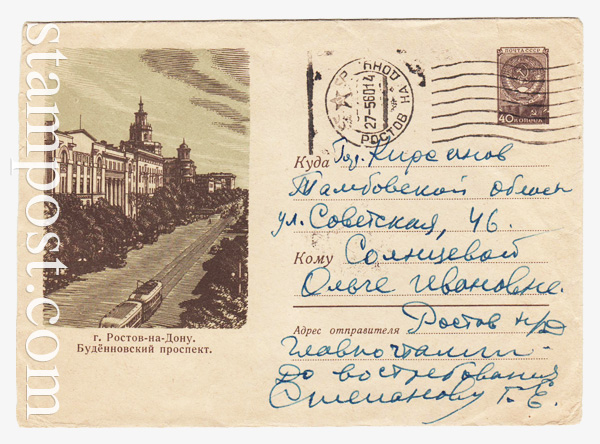 stampost.com
ПОЧТА СССР
40 КОПЕЕК
РОСТОВ НА ДОНУ
27-56014
Куда Гор. Кирсанов
Тамбовской област
ул. Советская, 46.
Кому Солнцевой
Ольге Ивановне.
Адрес отправителя Ростов н/Д
главпочтамт
До востребования
Степанову Г. Е.
г. Ростов-на-Дону.
Будённовский проспект.